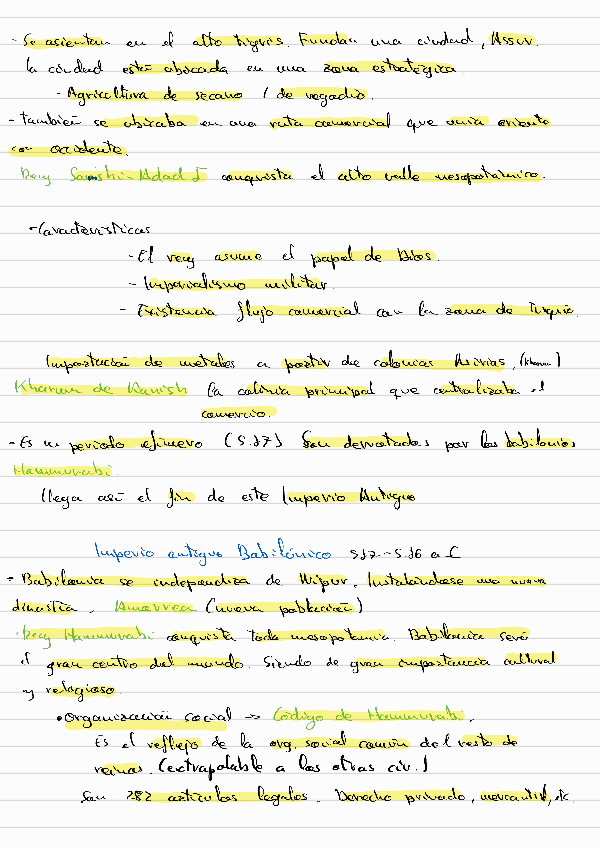 - Se asientan en el alto tigris. Fundan una ciudad, Assur.
la ciudad está ubicada en una zona estratégica.
- Agricultura de secano / de regadio.
- también se ubicaba en una ruta comercial que unia oriente
con occidente.
Rey Samshi-Adad I conquista el alto valle mesopotámico.
- Características
- El rey asume el papel de Dios.
- Imperialismo militar.
- Existencia flujo comercial con la zona de Turquía.
Importación de metales a partir de colonias Asirias, (kharum)
Kharum de Kanish la colonia principal que centralizaba el
comercio.
- Es un periodo efímero (S.17) Son derrotados por los babilonios
Hammurabi.
llega así el fin de este Imperio Antiguo
Imperio antiguo Babilónico S17 - S.16 a C
- Babilonia se independiza de Nipur. Instalándose una nueva
dinastía. Amorrea (nueva población)
· Rey Hammurabi conquista toda mesopotamia. Babilonia será
el gran centro del mundo. Siendo de gran importancia cultural
y religioso.
• Organización social -> Código de Hammurabi.
Es el reflejo de la org. social común del resto de
reinos. (extrapolable a las otras civ.)
Son 282 artículos legales. Derecho privado, mercantil, etc